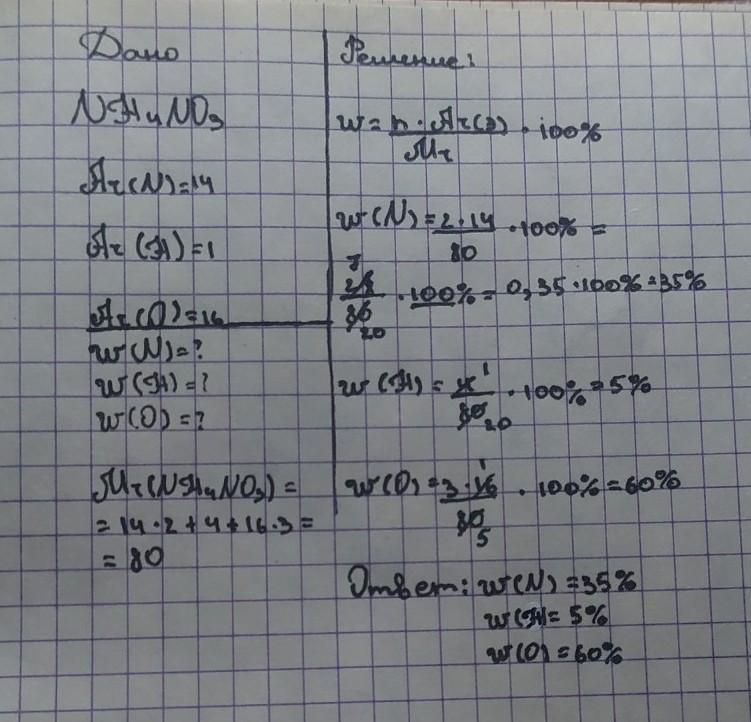 Дано
NH4NO3
Ar(N)=14
Ar(H)=1
Ar(O)=16
w(N)=?
w(H)=?
w(O)=?
Mr(NH4NO3)=
=14·2+4+16·3=
=80
Решение:
w=n·Ar(э)/Mr·100%
w(N)=2·14/80·100%=
28/80·100%=0,35·100%=35%
7
20
w(H)=4/80·100%=5%
1
20
w(O)=3·16/80·100%=60%
1
5
Ответ: w(N)=35%
w(H)=5%
w(O)=60%